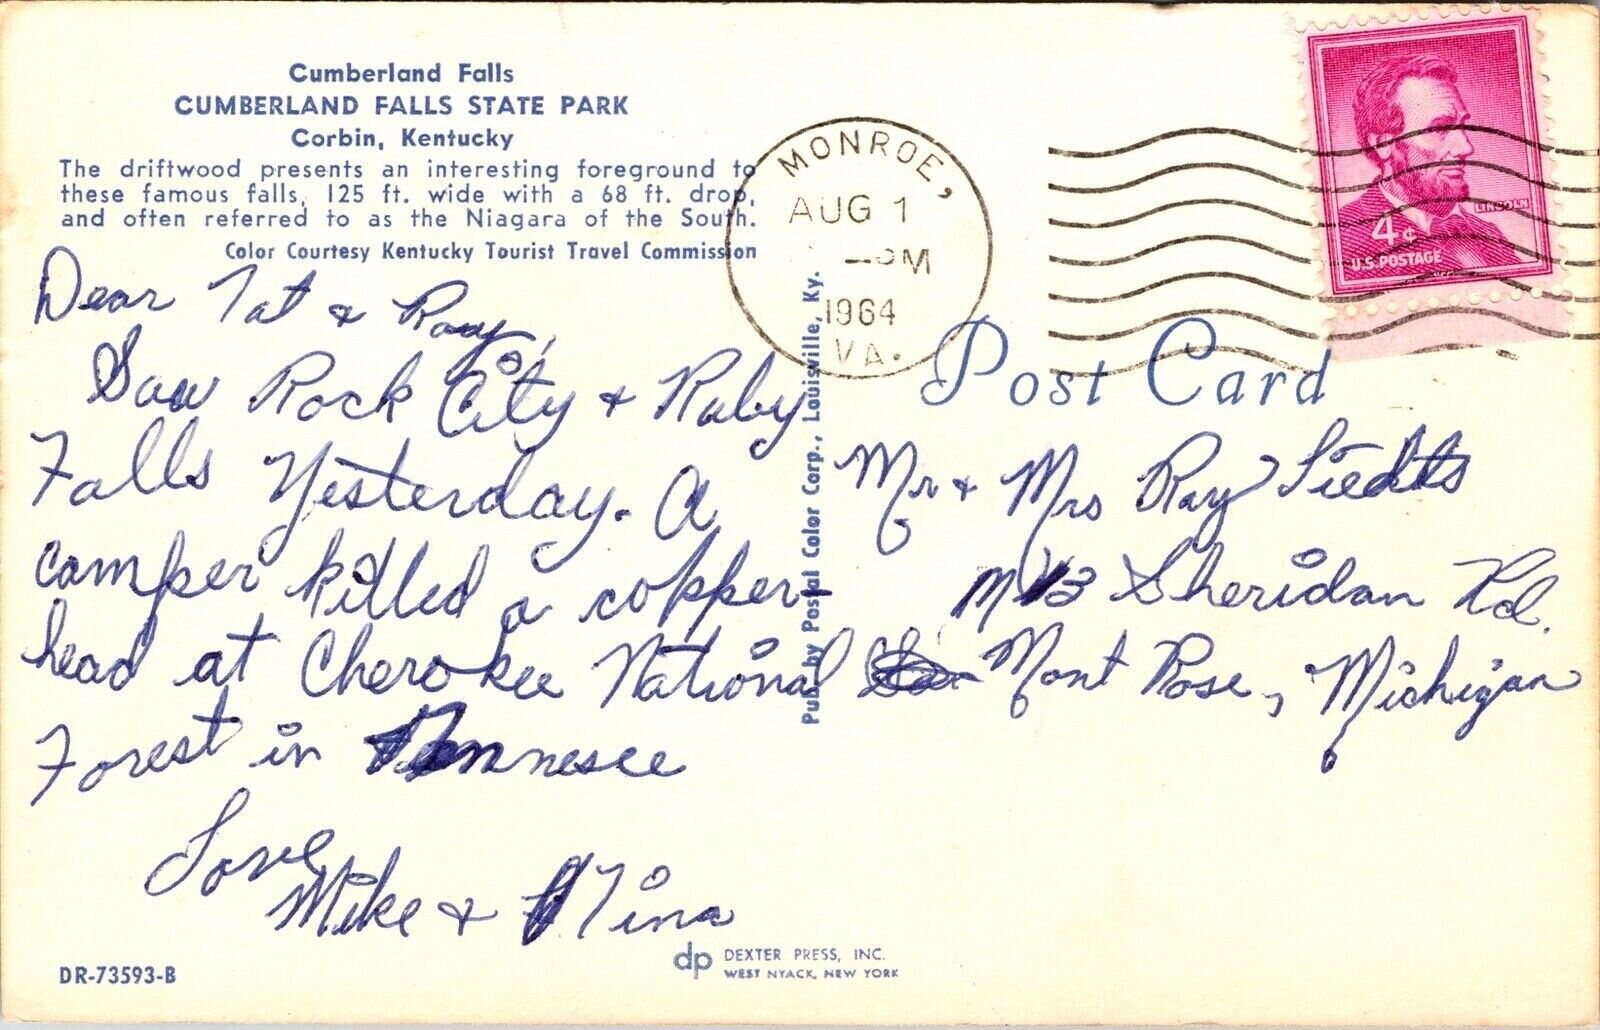 Cumberland Falls
CUMBERLAND FALLS STATE PARK
Corbin, Kentucky
The driftwood presents an interesting foreground to
these famous falls, 125 ft. wide with a 68 ft. drop,
and often referred to as the Niagara of the South.
Color Courtesy Kentucky Tourist Travel Commission
MONROE,
AUG 1
PM
1964
VA.
LINCOLN
4¢
U.S. POSTAGE
Post Card
Pub. by Postal Color Corp., Louisville, Ky.
Dear Tat & Ray,
Saw Rock City & Ruby
Falls Yesterday. A
camper killed a copper-
head at Cherokee National
Forest in Tennesee
Love
Mike & Tina
Mr & Mrs Ray
Sheridan Rd.
Mont Rose, Michigan
DR-73593-B
dp DEXTER PRESS, INC.
WEST NYACK, NEW YORK